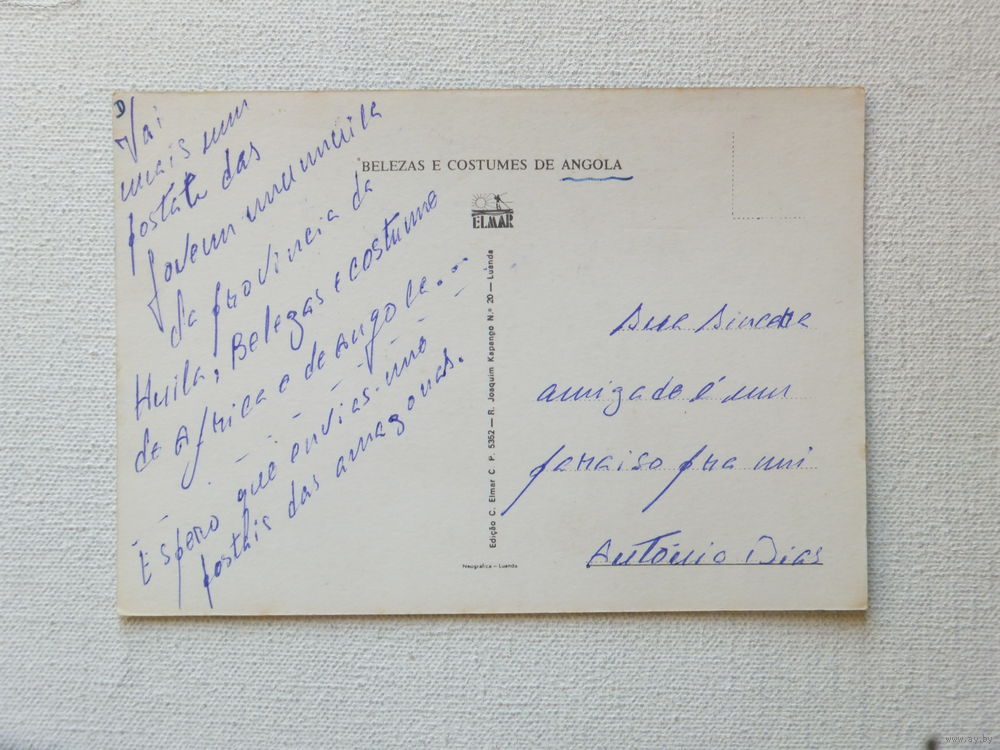 D
Vai
mais um
postal das
Jovem mumuila
da provincia da
Huila, Belezas e costume
de Africa e de Angola...
Espero que envias-me
postais das amazonas.
BELEZAS E COSTUMES DE ANGOLA
ELMAR
Edição C. Elmar C. P. 5352 — R. Joaquim Kapango N.º 20 — Luanda
Neográfica — Luanda
Sua Sincera
amizade é um
paraiso pra mi
António Dias
www.ay.by